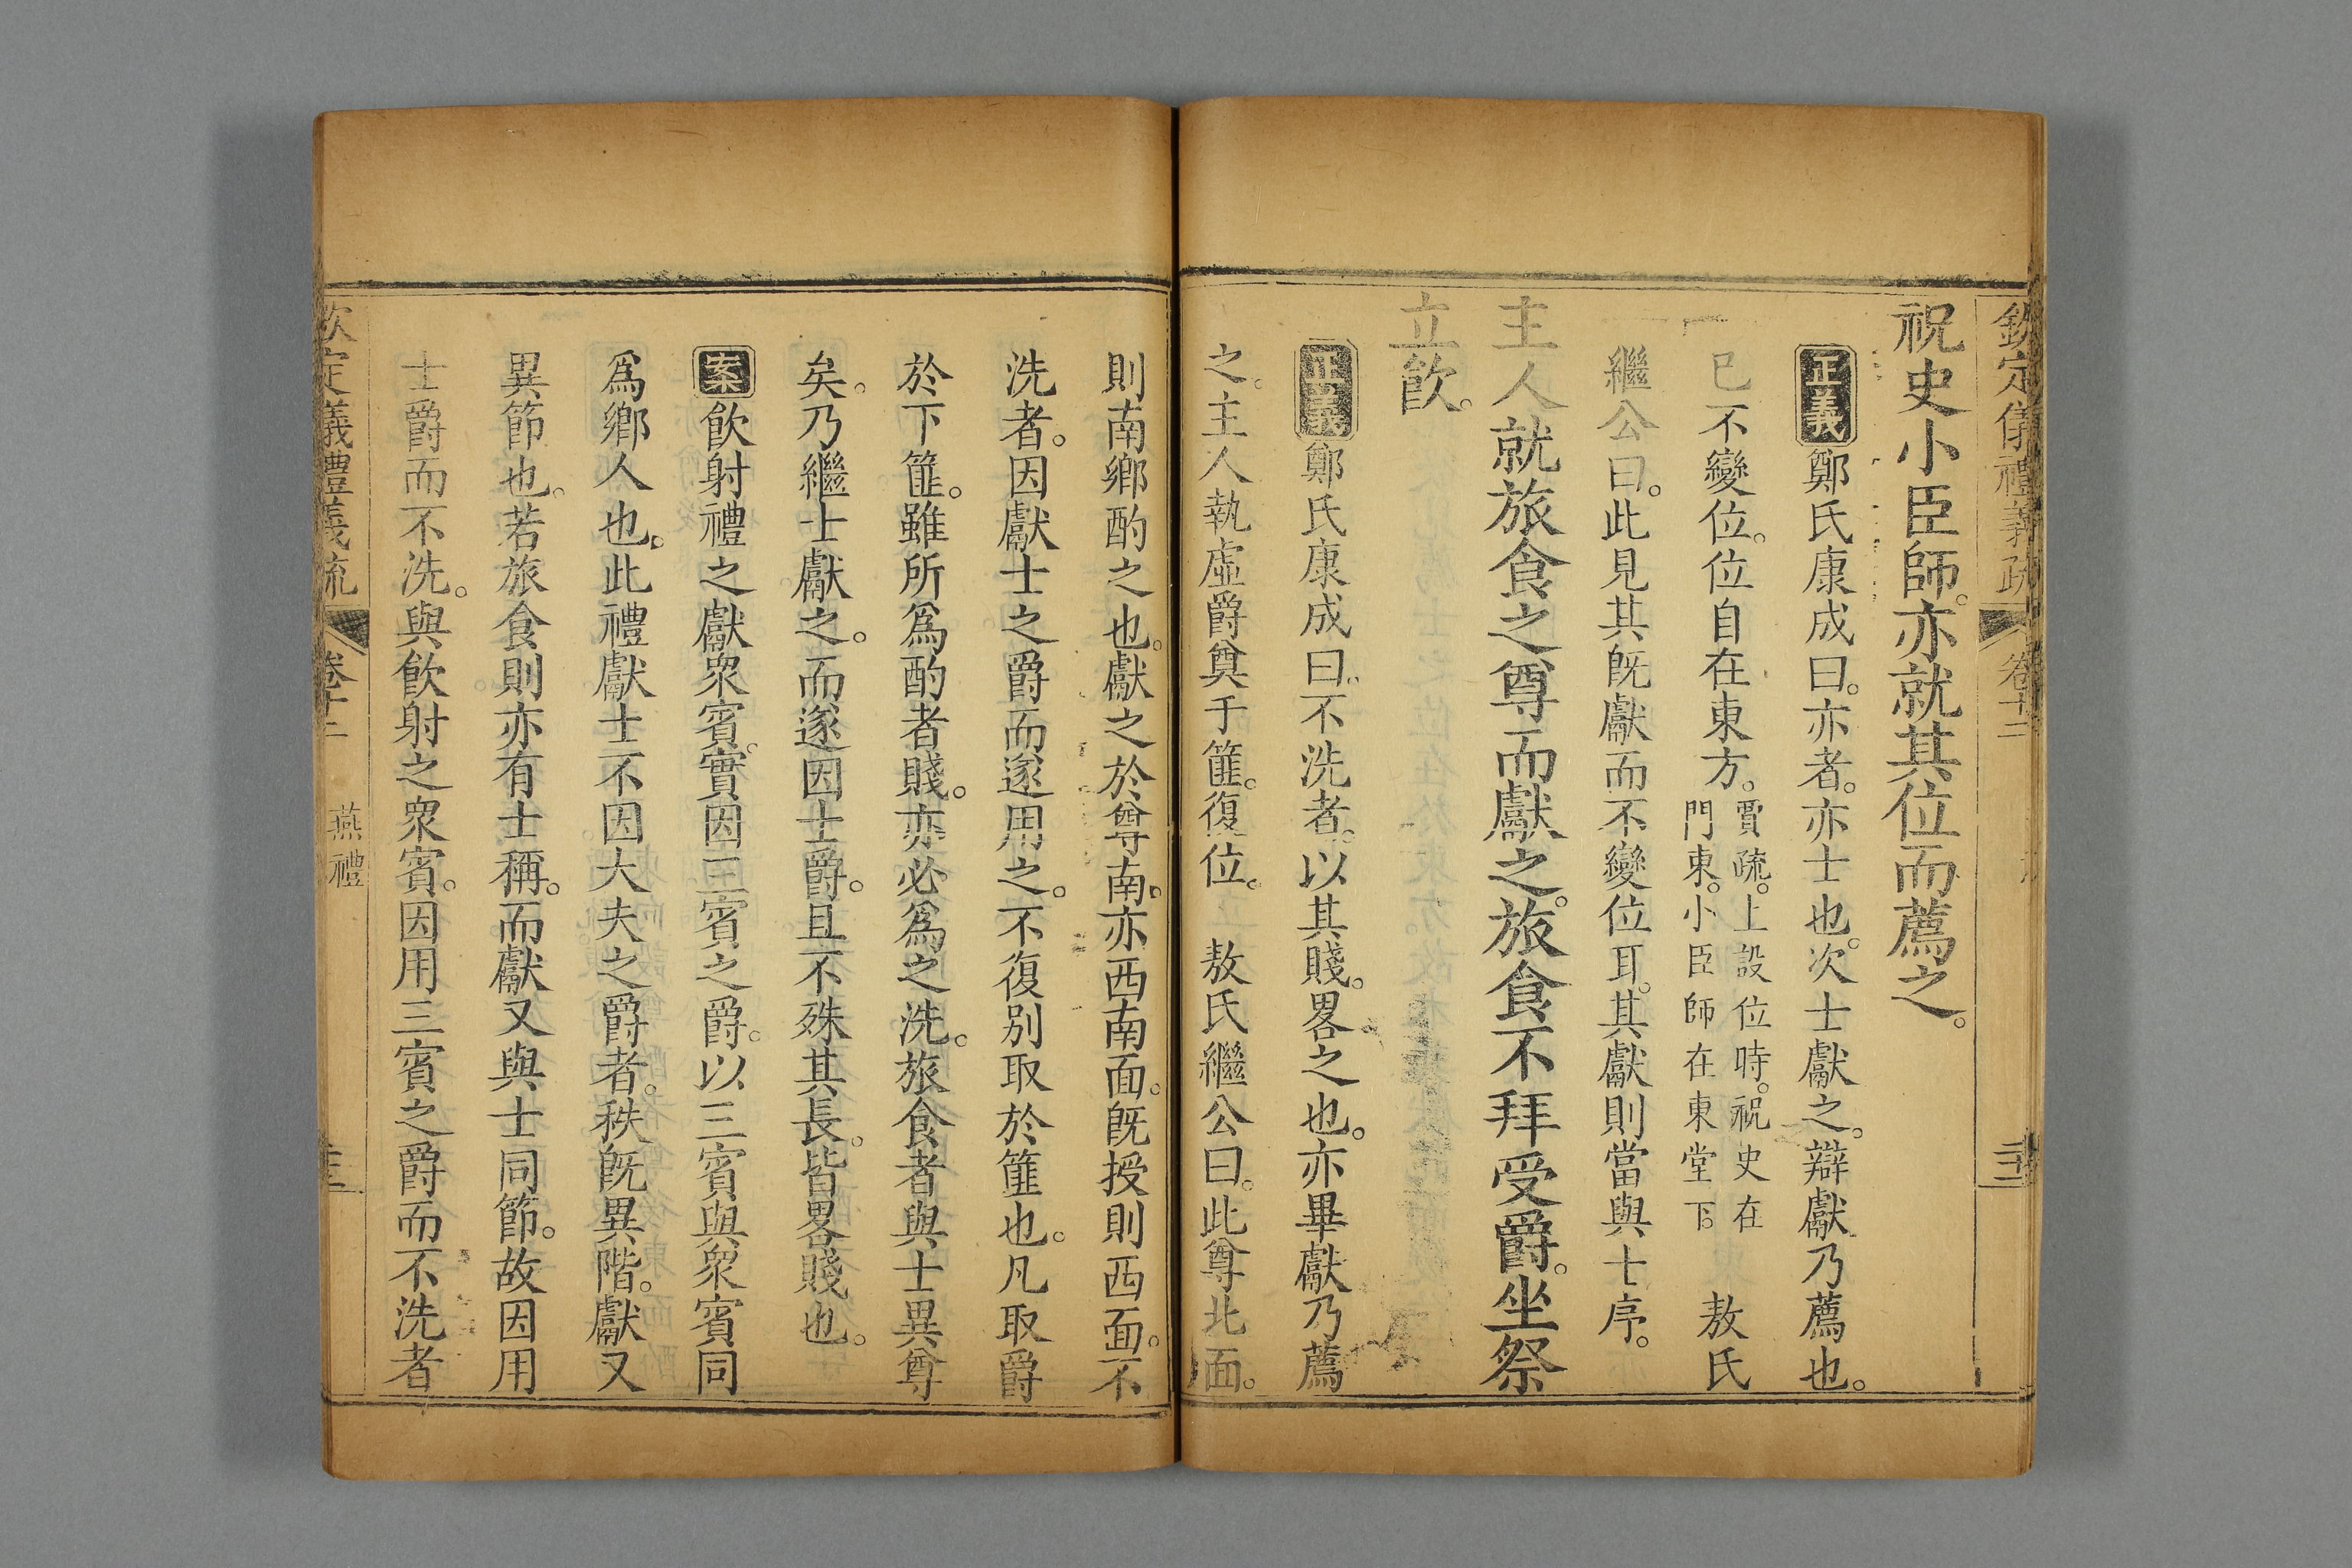 欽定儀禮義疏 卷十二 三十二
祝史小臣師。亦就其位而薦之。
正義鄭氏康成曰。亦者。亦士也。次士獻之。辯獻乃薦也。
已不變位。位自在東方。賈疏。上設位時。祝史在門東。小臣師在東堂下。 敖氏
繼公曰。此見其旣獻而不變位耳。其獻則當與士序。
主人就旅食之尊而獻之。旅食不拜受爵。坐祭
立飮。
正義鄭氏康成曰。不洗者。以其賤。畧之也。亦畢獻乃薦
之。主人執虛爵奠于篚。復位。 敖氏繼公曰。此尊北面。
則南鄉酌之也。獻之於尊南。南亦西南面。旣授則西面。不
洗者。因獻士之爵而遂用之。不復別取於篚也。凡取爵
於下篚。雖所爲酌者賤。亦必爲之洗。旅食者與士異尊
矣。乃繼士獻之。而遂因士爵。且不殊其長。皆畧賤也。
案飮射禮之獻衆賓。實因三賓之爵。以三賓與衆賓同
爲鄉人也。此禮獻士不因大夫之爵者。秩旣異階。獻又
異節也。若旅食則亦有士稱。而獻又與士同節。故因用
士爵而不洗。與飮射之衆賓。因用三賓之爵而不洗者
欽定儀禮義疏 卷十二 燕禮